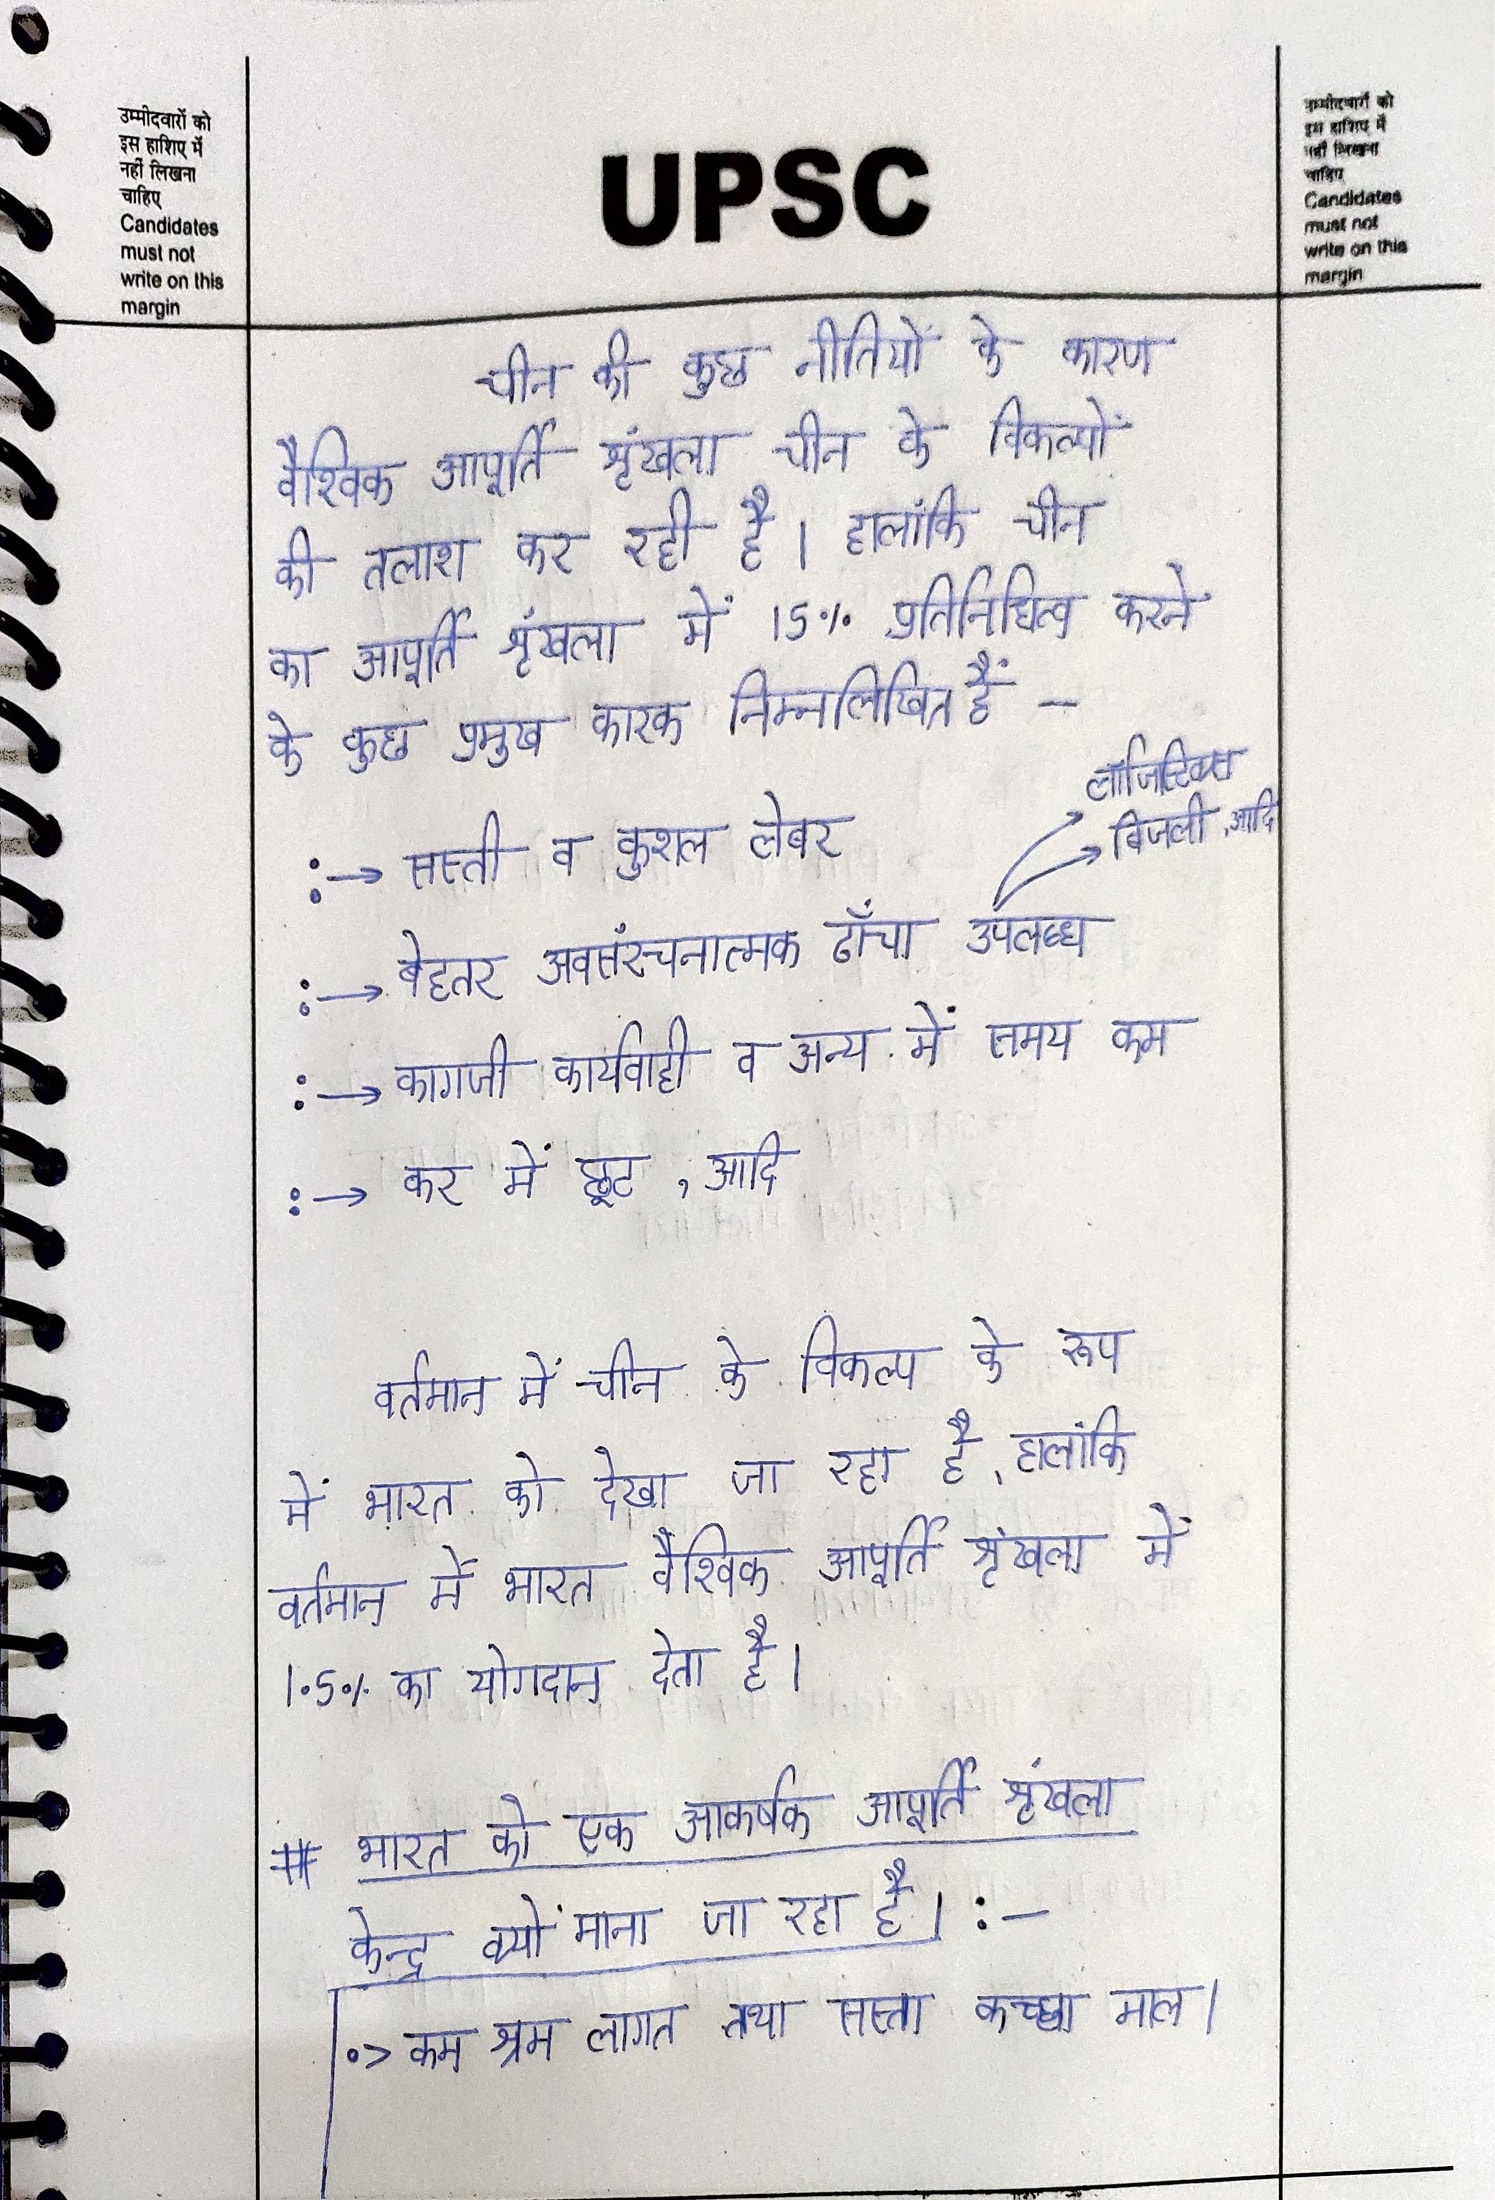 उम्मीदवारों को
इस हाशिए में
नहीं लिखना
चाहिए
Candidates
must not
write on this
margin
UPSC
उम्मीदवारों को
इस हाशिए में
नहीं लिखना
चाहिए
Candidates
must not
write on this
margin
चीन की कुछ नीतियों के कारण
वैश्विक आपूर्ति श्रृंखला चीन के विकल्पों
की तलाश कर रही है। हालांकि चीन
का आपूर्ति श्रृंखला में 15% प्रतिनिधित्व करने
के कुछ प्रमुख कारक निम्नलिखित हैं -
लॉजिस्टिक्स
बिजली, आदि
:→ सस्ती व कुशल लेबर
:→ बेहतर अवसंरचनात्मक ढाँचा उपलब्ध
:→ कागजी कार्यवाही व अन्य में समय कम
:→ कर में छूट, आदि
वर्तमान में चीन के विकल्प के रूप
में भारत को देखा जा रहा है, हालांकि
वर्तमान में भारत वैश्विक आपूर्ति श्रृंखला में
1.5% का योगदान देता है।
# भारत को एक आकर्षक आपूर्ति श्रृंखला
केन्द्र क्यों माना जा रहा है। :-
•> कम श्रम लागत तथा सस्ता कच्छा माल।